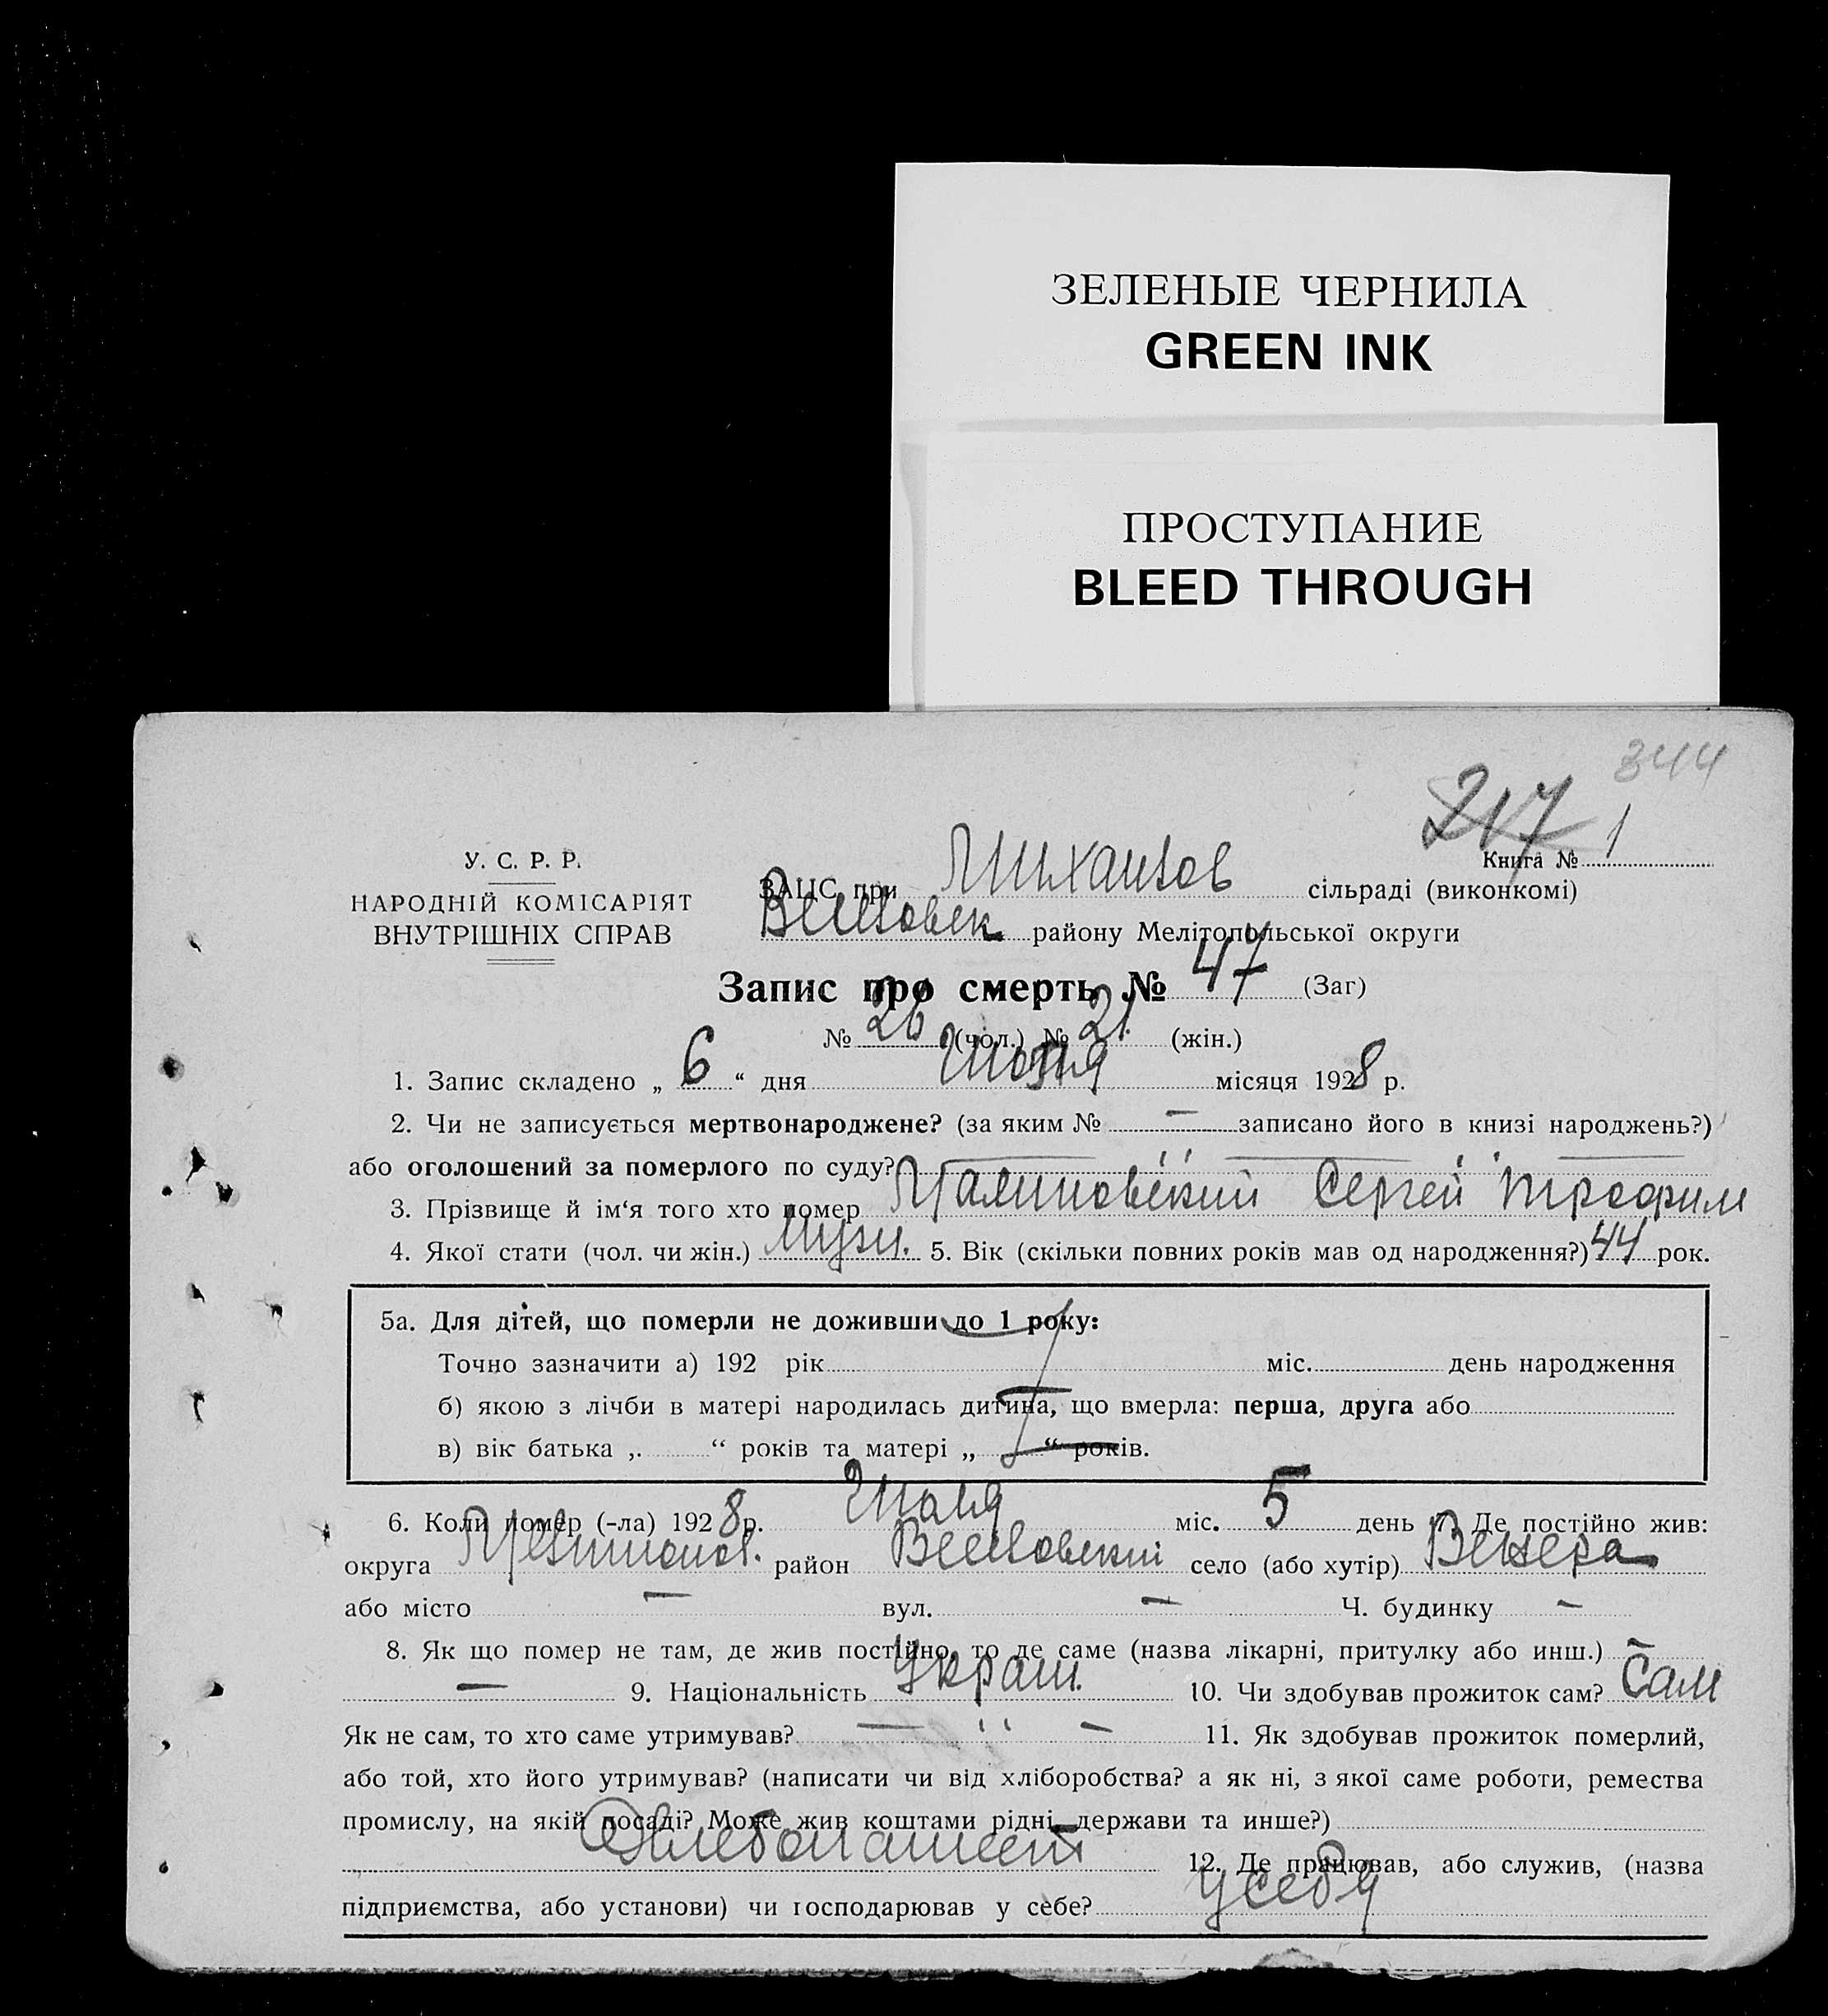 ЗЕЛЕНЫЕ ЧЕРНИЛА
GREEN INK
ПРОСТУПАНИЕ
BLEED THROUGH
344
217
У. С. Р. Р.
НАРОДНІЙ КОМІСАРІЯТ
ВНУТРІШНІХ СПРАВ
Книга № 1
ЗАЦС при Михайлов сільраді (виконкомі)
району Мелітопольської округи
Запис про смерть № 47 (Заг)
№ 26 (чол.) № 21 (жін.)
1. Запис складено „ 6 “ дня Июня місяця 1928 р.
2. Чи не записується мертвонароджене? (за яким № — записано його в книзі народжень?)
або оголошений за померлого по суду?
3. Прізвище й ім‘я того хто помер Малиновский Сергей Трофим
4. Якої стати (чол. чи жін.) Мужч. 5. Вік (скільки повних років мав од народження?) 44 рок.
5а. Для дітей, що померли не доживши до 1 року:
Точно зазначити а) 192 рік міс. день народження
б) якою з лічби в матері народилась дитина, що вмерла: перша, друга або
в) вік батька „ “ років та матері „ “ років.
6. Коли помер (-ла) 1928 р. Июня міс. 5 день 7. Де постійно жив:
округа район село (або хутір)
або місто — вул. — Ч. будинку —
8. Як що помер не там, де жив постійно, то де саме (назва лікарні, притулку або инш.) —
— 9. Національність Украин. 10. Чи здобував прожиток сам? Сам
Як не сам, то хто саме утримував? — " — 11. Як здобував прожиток померлий,
або той, хто його утримував? (написати чи від хліборобства? а як ні, з якої саме роботи, ремества
промислу, на якій посаді? Може жив коштами рідні, держави та инше?)
Хлебопашест 12. Де працював, або служив, (назва
підприємства, або установи) чи господарював у себе? У себя